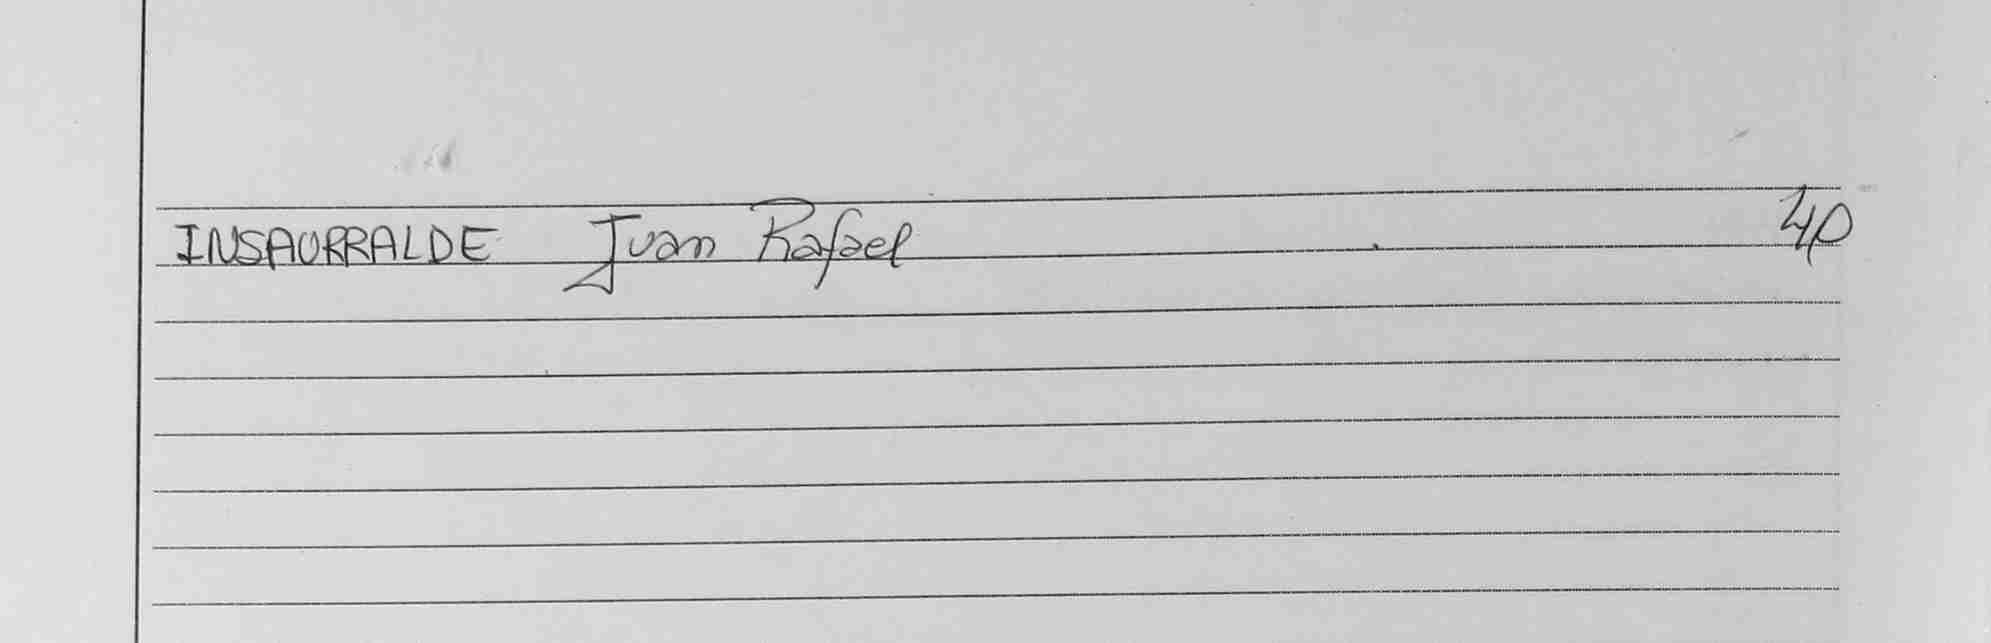 INSAURRALDE Juan Rafael 40